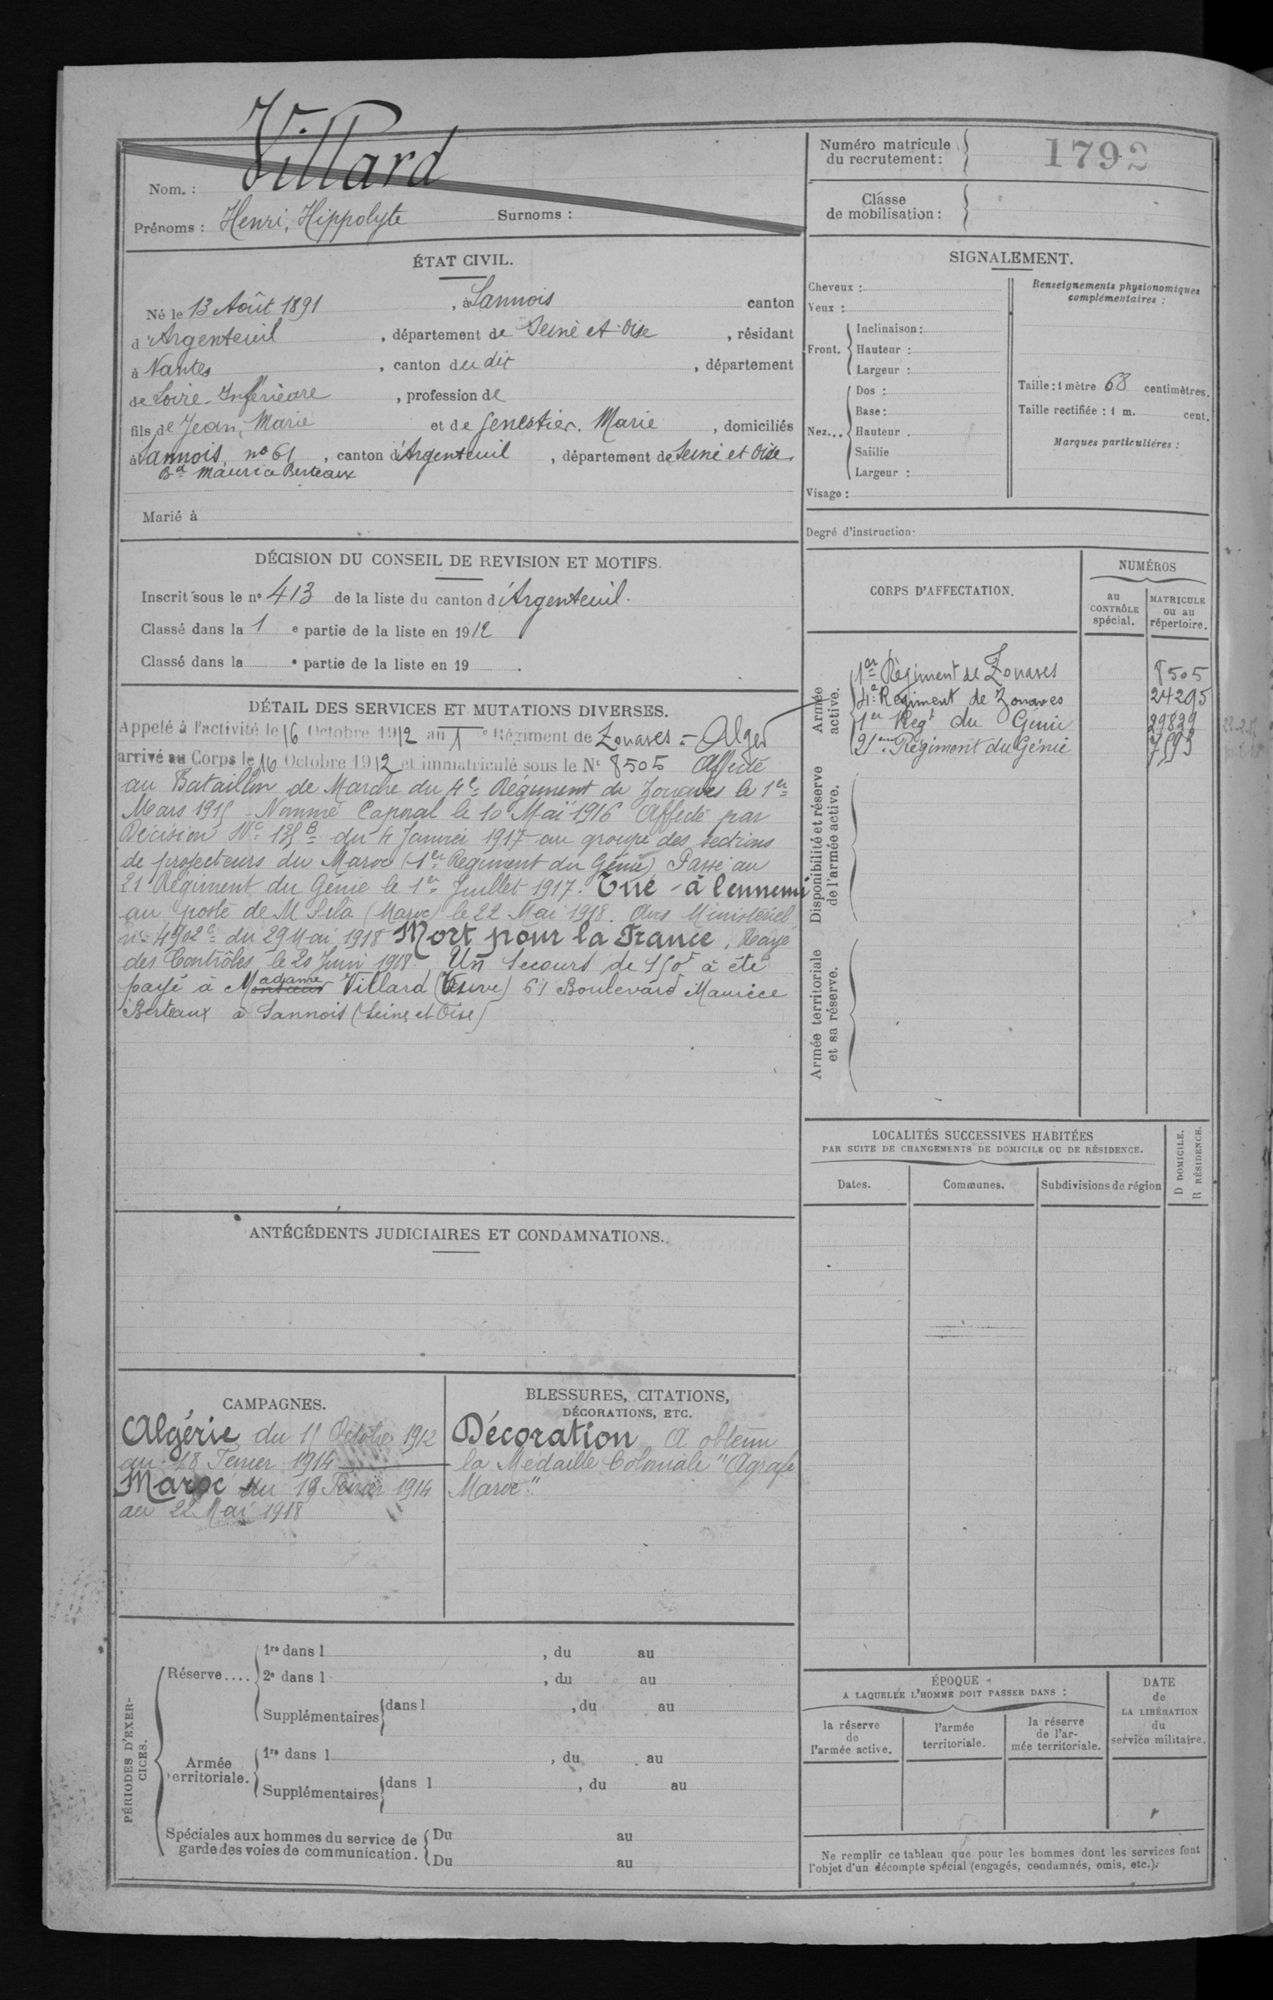 Villard
Nom. :
Prénoms : Henri, Hippolyte Surnoms :
Numéro matricule du recrutement : 1792
Classe de mobilisation :
ÉTAT CIVIL.
Né le 13 Août 1891, à Sannois canton
d'Argenteuil, département de Seine et Oise, résidant
à Nantes, canton du dit, département
de Loire-Inférieure, profession de
fils de Jean, Marie et de Genestier, Marie, domiciliés
à Sannois, n° 61, canton d'Argenteuil, département de Seine et Oise
Bd Maurice Berteaux
Marié à
SIGNALEMENT.
Cheveux :
Yeux :
Front. Inclinaison :
Hauteur :
Largeur :
Nez... Dos :
Base :
Hauteur
Saillie
Largeur :
Visage :
Renseignements physionomiques complémentaires :
Taille : 1 mètre 68 centimètres.
Taille rectifiée : 1 m. cent.
Marques particulières :
Degré d'instruction :
DÉCISION DU CONSEIL DE REVISION ET MOTIFS.
Inscrit sous le n° 413 de la liste du canton d'Argenteuil.
Classé dans la 1 e partie de la liste en 1912
Classé dans la e partie de la liste en 19 .
CORPS D'AFFECTATION.
NUMÉROS
au CONTRÔLE spécial.
MATRICULE ou au répertoire.
Armée active.
1er Régiment de Zouaves 8505
4e Régiment de Zouaves 24295
1er Regt du Génie 29829
21eme Régiment du Génie
Disponibilité et réserve de l'armée active.
Armée territoriale et sa réserve.
DÉTAIL DES SERVICES ET MUTATIONS DIVERSES.
Appelé à l'activité le 16 Octobre 1912 au 1er Régiment de Zouaves - Alger
arrivé au Corps le 16 Octobre 1912 et immatriculé sous le N° 8505 Affecté
au Bataillon de Marche du 4e Régiment de Zouaves le 1er
Mars 1915 Nommé Caporal le 10 Mai 1916 Affecté par
Décision N° 135B du 4 Janvier 1917 au groupe des sections
de projecteurs du Maroc (1er Régiment du Génie) Passé au
21 Régiment du Génie le 1er Juillet 1917. Tué à l'ennemi
au poste de (Maroc) le 22 Mai 1918. Avis Ministériel
n° 4902 du 29 Mai 1918 Mort pour la France, Rayé
des Contrôles le 20 Juin 1918. Un secours de 150f à été
payé à Madame Villard (Veuve) 61 Boulevard Maurice
Berteaux à Sannois (Seine et Oise)
LOCALITÉS SUCCESSIVES HABITÉES
PAR SUITE DE CHANGEMENTS DE DOMICILE OU DE RÉSIDENCE.
Dates.
Communes.
Subdivisions de région
D DOMICILE.
R RÉSIDENCE.
ANTÉCÉDENTS JUDICIAIRES ET CONDAMNATIONS.
CAMPAGNES.
Algérie du 15 Octobre 1912
au 18 Fevrier 1914
Maroc du 18 Fevrier 1914
au 22 Mai 1918
BLESSURES, CITATIONS,
DÉCORATIONS, ETC.
Décoration A obtenu
la Médaille Coloniale "Agrafe
Maroc".
PÉRIODES D'EXERCICES.
Réserve.... 1re dans l , du au
2e dans l , du au
Supplémentaires dans l , du au
Armée territoriale. 1re dans l , du au
Supplémentaires dans l , du au
Spéciales aux hommes du service de garde des voies de communication. Du au
Du au
ÉPOQUE
A LAQUELLE L'HOMME DOIT PASSER DANS :
la réserve de l'armée active.
l'armée territoriale.
la réserve de l'armée territoriale.
DATE de LA LIBÉRATION du service militaire.
Ne remplir ce tableau que pour les hommes dont les services font
l'objet d'un décompte spécial (engagés, condamnés, omis, etc.).